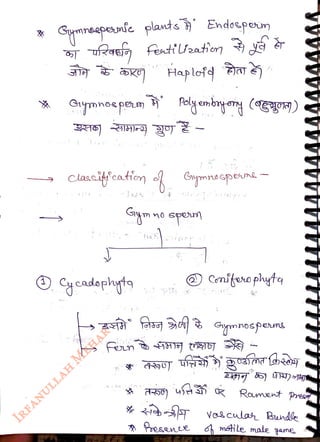 * Gymnospermic plants में Endosperm
का परिवर्धन Fertilization से पूर्व हो
जाने के कारण Haploid होता है।
* Gymnosperm में Polyembryony (बहुभ्रूणता)
इसका सामान्य गुण है -
→ Classification of Gymnosperms -
→ Gymnosperm
① Cycadophyta ② Coniferophyta
→ इसमें निम्न श्रेणी के Gymnosperms
→ Fern के समान लक्षण जैसे -
* तरुण पत्तियों में कुण्डलित किसलय
का पाया जाना
* तरुण पत्तियों पर Rament
* संकेन्द्रीय vascular Bundle
* Presence of motile male game
IRFANULLAH